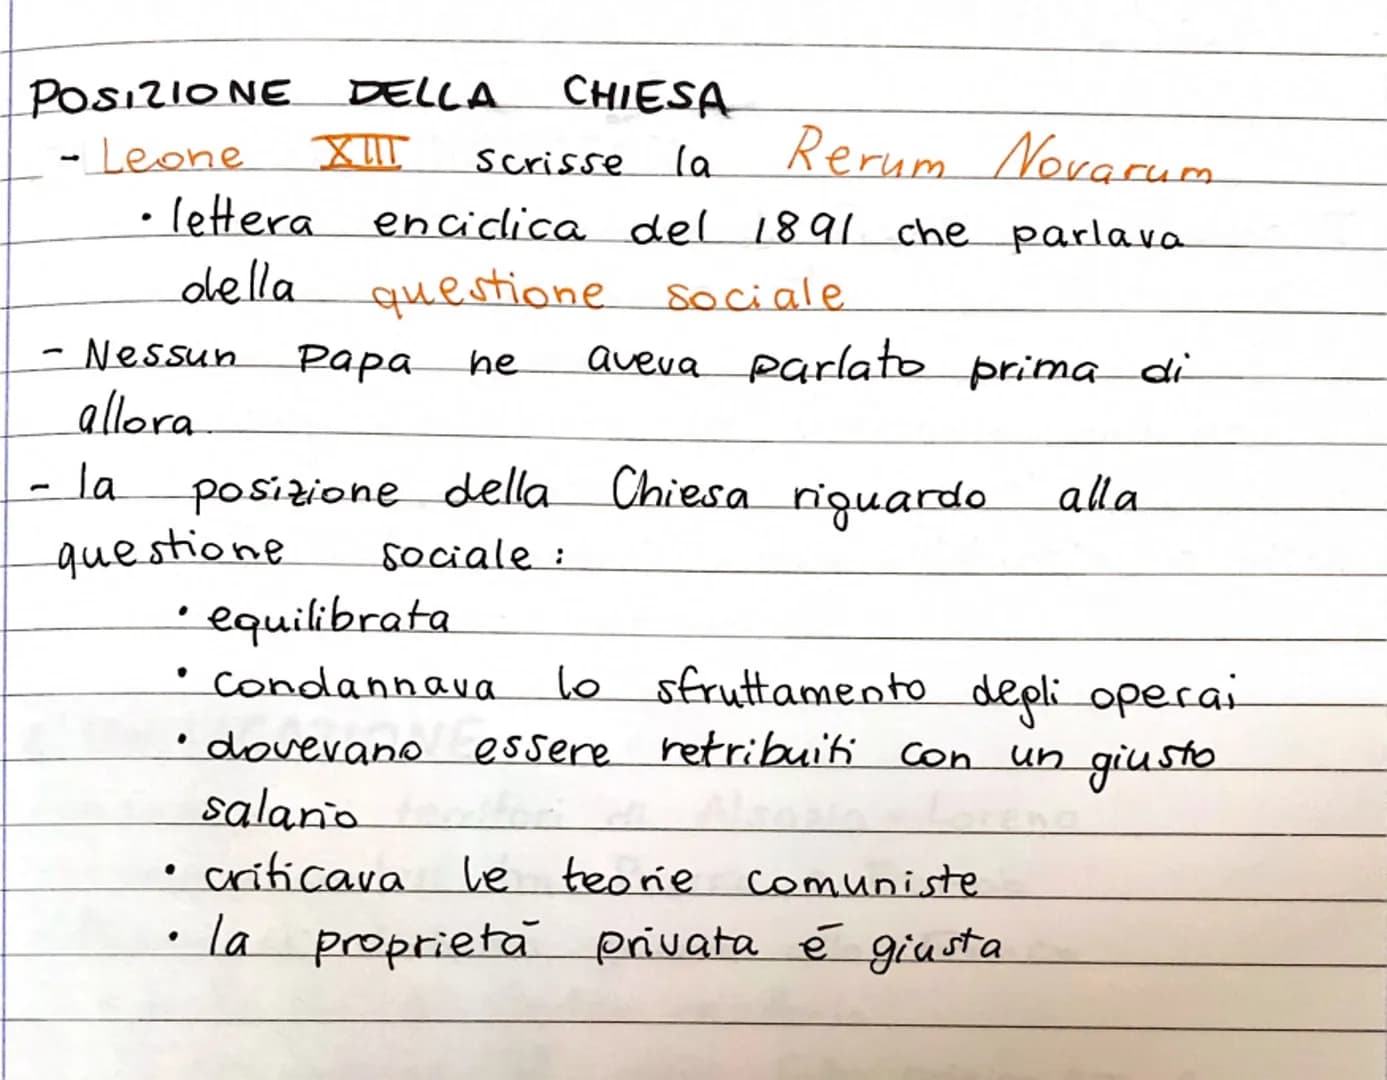 POSIZIONE DELLA CHIESA
- Leone XIII scrisse la Rerum Novarum
• lettera enciclica del 1891 che parlava
della questione sociale
- Nessun Papa ne aveva parlato prima di
allora.
- la posizione della Chiesa riguardo alla
questione sociale:
• equilibrata
• condannava lo sfruttamento degli operai
• dovevano essere retribuiti con un giusto
salario
• criticava le teorie comuniste
• la proprietà privata è giusta